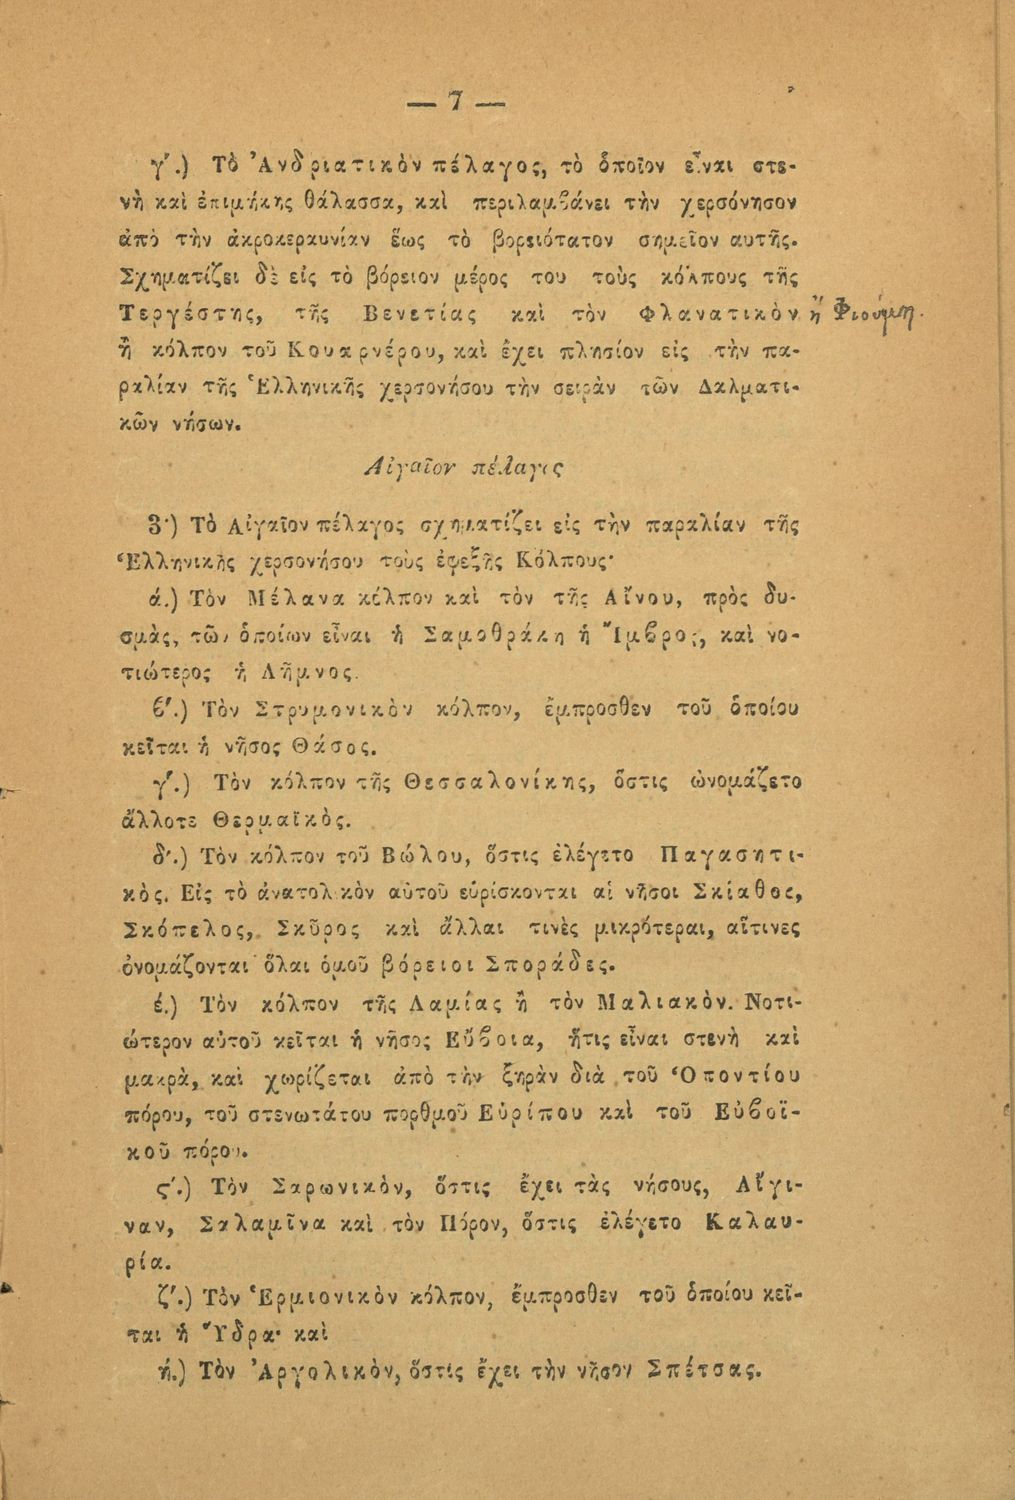 — 7 —
γ′.) Τὸ Ἀνδριατικὸν πέλαγος, τὸ ὁποῖον εἶναι στε-
νὴ καὶ ἐπιμήκης θάλασσα, καὶ περιλαμβάνει τὴν χερσόνησον
ἀπὸ τὴν ἀκροκεραυνίαν ἕως τὸ βορειότατον σημεῖον αυτῆς.
Σχηματίζει δὲ εἰς τὸ βόρειον μέρος του τοὺς κόλπους τῆς
Τεργέστης, τῆς Βενετίας καὶ τὸν Φλανατικὸν ἢ Φιούμη.
ἢ κόλπον τοῦ Κουαρνέρου, καὶ ἔχει πλησίον εἰς τὴν πα-
ραλίαν τῆς Ἑλληνικῆς χερσονήσου τὴν σειρὰν τῶν Δαλματι-
κῶν νήσων.
Αἰγαῖον πέλαγος
3·) Τὸ Αἰγαῖον πέλαγος σχηματίζει εἰς τὴν παραλίαν τῆς
Ἑλληνικῆς χερσονήσου τοὺς ἐφεξῆς Κόλπους·
ά.) Τὸν Μέλανα κόλπον καὶ τὸν τῆς Αἴνου, πρὸς δυ-
σμὰς, τῶν ὁποίων εἶναι ἡ Σαμοθράκη ἡ Ἴμβρος, καὶ νο-
τιώτερος ἡ Λῆμνος.
β′.) Τὸν Στρυμονικὸν κόλπον, ἔμπροσθεν τοῦ ὁποίου
κεῖται ἡ νῆσος Θάσος.
γ′.) Τὸν κόλπον τῆς Θεσσαλονίκης, ὅστις ὠνομάζετο
ἄλλοτε Θερμαϊκὸς.
δ′.) Τὸν κόλπον τοῦ Βώλου, ὅστις ἐλέγετο Παγασητι-
κὸς. Εἰς τὸ ἀνατολικὸν αὐτοῦ εὑρίσκονται αἱ νῆσοι Σκίαθος,
Σκόπελος, Σκῦρος καὶ ἄλλαι τινὲς μικρότεραι, αἵτινες
ὀνομάζονται ὅλαι ὁμοῦ βόρειοι Σποράδες.
έ.) Τὸν κόλπον τῆς Λαμίας ἢ τὸν Μαλιακὸν. Νοτι-
ώτερον αὐτοῦ κεῖται ἡ νῆσος Εὔβοια, ἥτις εἶναι στενὴ καὶ
μακρὰ, καὶ χωρίζεται ἀπὸ τὴν ξηρὰν διὰ τοῦ Ὀποντίου
πόρου, τοῦ στενωτάτου πορθμοῦ Εὐρίπου καὶ τοῦ Εὐβοϊ-
κοῦ πόρου.
ς′.) Τὸν Σαρωνικὸν, ὅστις ἔχει τὰς νήσους, Αἴγι-
ναν, Σαλαμῖνα καὶ τὸν Πόρον, ὅστις ἐλέγετο Καλαυ-
ρία.
ζ′.) Τὸν Ἑρμιονικὸν κόλπον, ἔμπροσθεν τοῦ ὁποίου κεῖ-
ται ἡ Ὕδρα· καὶ
ή.) Τὸν Ἀργολικὸν, ὅστις ἔχει τὴν νῆσον Σπέτσας.